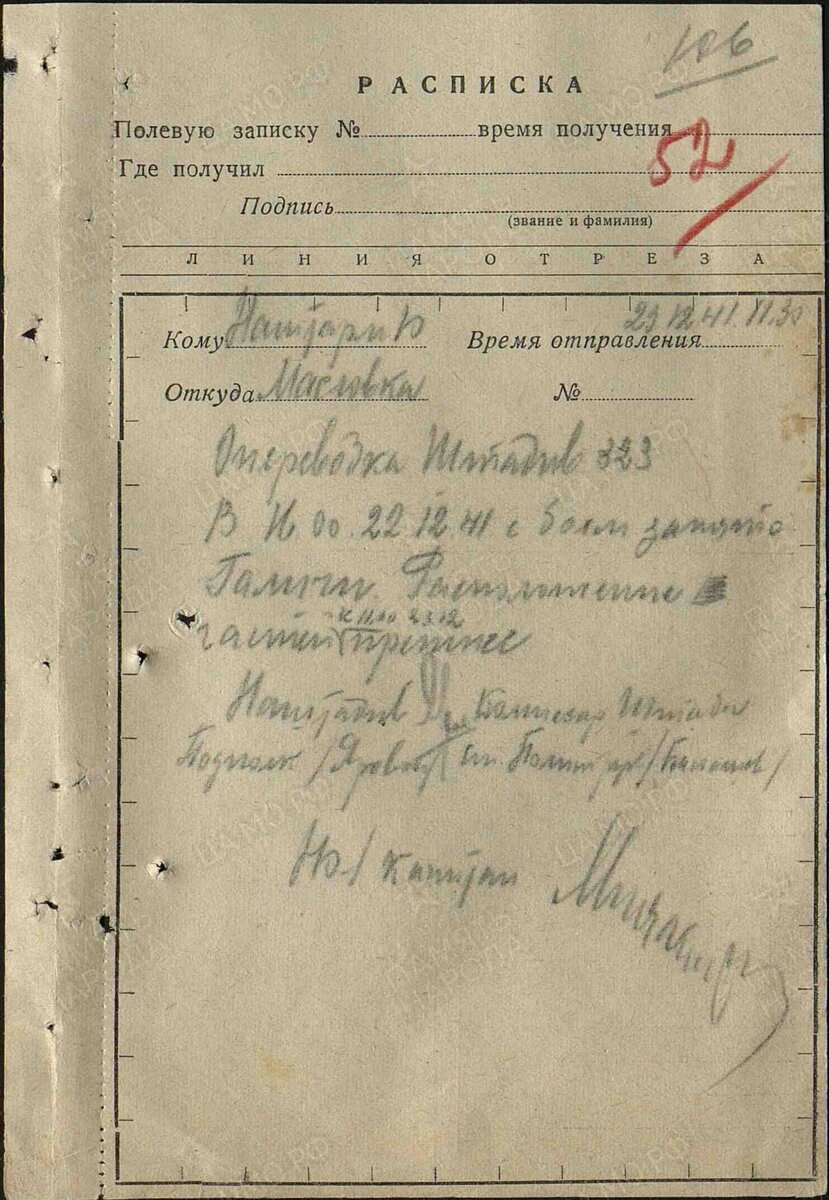 106
РАСПИСКА
Полевую записку № время получения
52
Где получил
Подпись
(звание и фамилия)
ЛИНИЯ ОТРЕЗА
Кому Время отправления 23 12 41. 11.30
Откуда Масловка №
Оперсводка Штадив 323
В 16 00 22 12 41 с боем занято
Расположение
частей к 11.00 23.12 прежнее
Наштадив Комиссар Штаба
/Яровой/ Ст. Политрук
Капитан